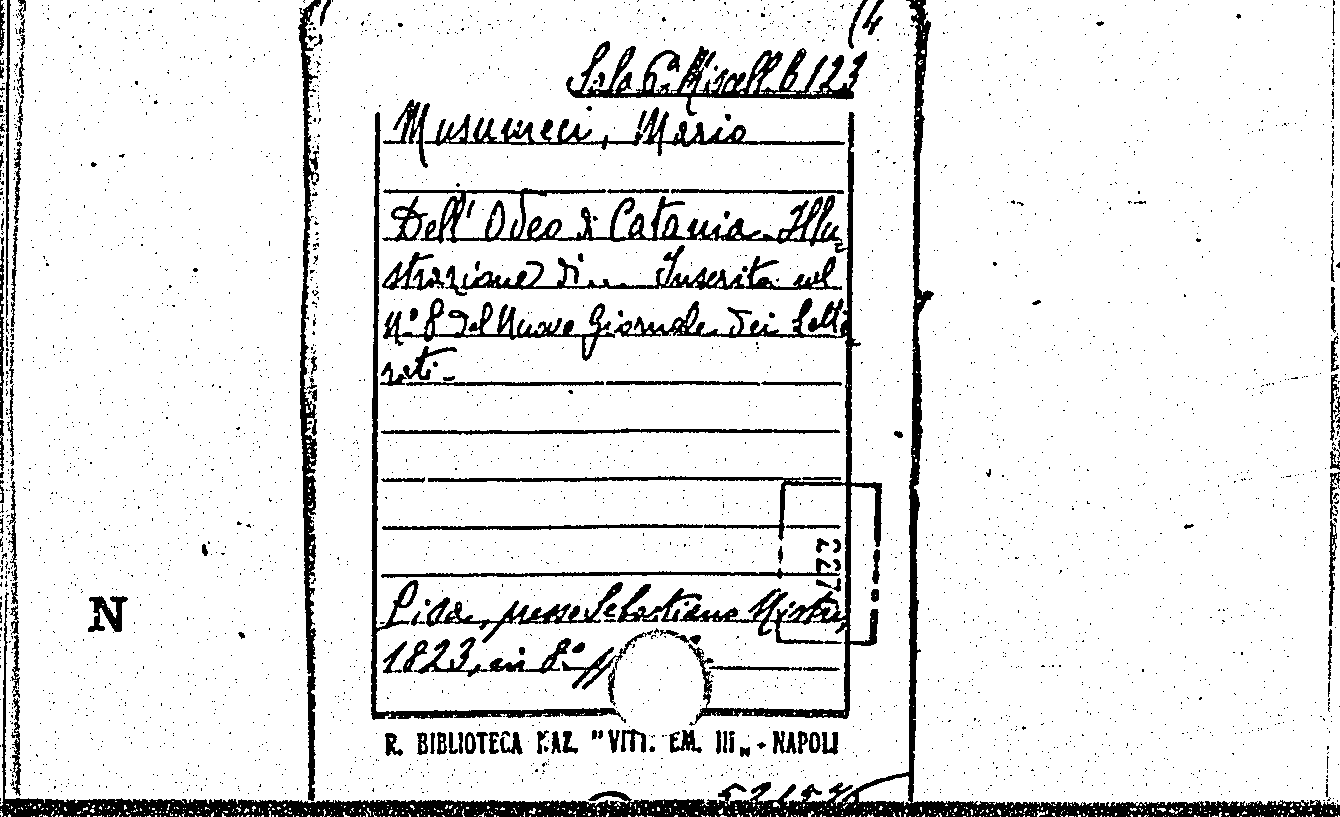 Sala 6ª Miscell. B 123
Musumeci, Mario
Dell' Odeo di Catania. Illu=
strazione di... Inserita nel
n.° 8 del Nuovo Giornale dei Lette
rati-
227
N
Pisa, presso Sebastiano Nistri,
1823, in 8.°
R. BIBLIOTECA NAZ. "VITT. EM. III„ - NAPOLI